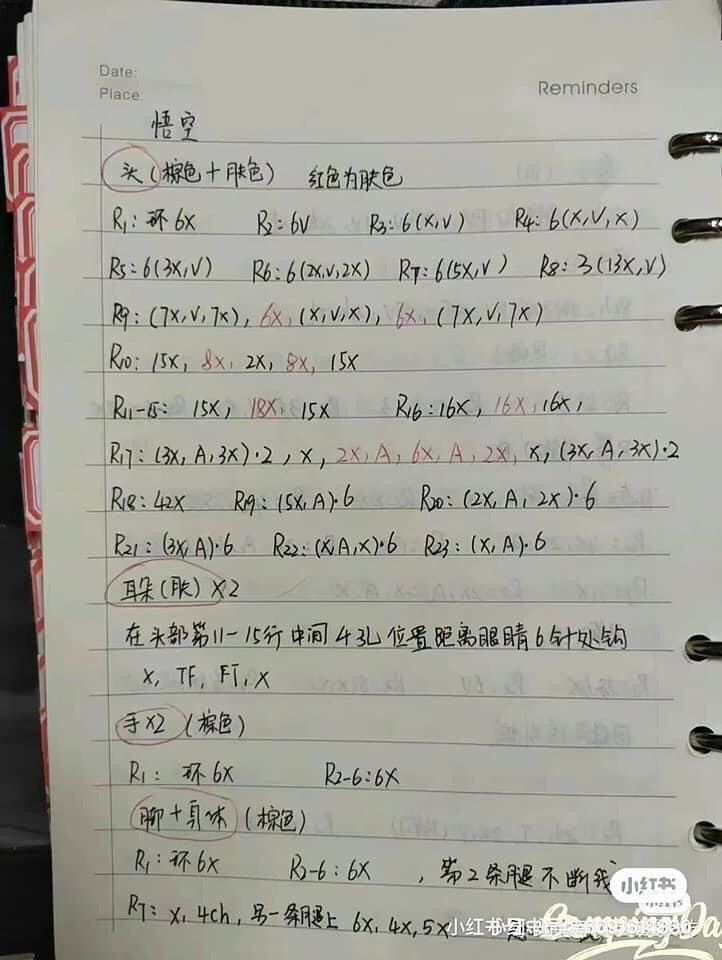 Date:
Place:
Reminders
悟空
头(棕色+肤色) 红色为肤色
R1: 环6X R2: 6V R3: 6(X,V) R4: 6(X,V,X)
R5: 6(3X,V) R6: 6(2X,V,2X) R7: 6(5X,V) R8: 3(13X,V)
R9: (7X,V,7X), 6X, (X,V,X), 6X, (7X,V,7X)
R10: 15X, 8X, 2X, 8X, 15X
R11-15: 15X, 18X, 15X R16: 16X, 16X, 16X,
R17: (3X, A, 3X)·2, X, 2X, A, 6X, A, 2X, X, (3X, A, 3X)·2
R18: 42X R19: (5X, A)·6 R20: (2X, A, 2X)·6
R21: (3X, A)·6 R22: (X, A, X)·6 R23: (X, A)·6
耳朵(肤)X2
在头部第11-15行中间4孔位置距离眼睛6针处钩
X, TF, FT, X
手X2 (棕色)
R1: 环6X R2-6: 6X
脚+身体 (棕色)
R1: 环6X R2-6: 6X , 第2条腿不断线
R7: X, 4ch, 另一条腿上 6X, 4X, 5X
小红书
小红书
小红书